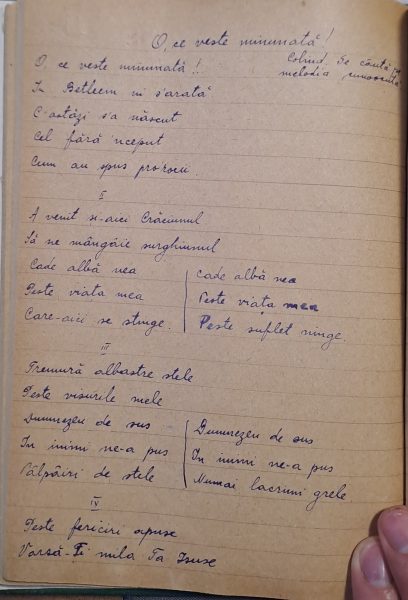 O, ce veste minunată!
Colind. Se cântă pe
melodia cunoscută
O, ce veste minunată!
În Betleem ni s'arată
C-astăzi s'a născut
Cel fără 'nceput
Cum au spus prorocii.
I
A venit și-aici Crăciunul
Să ne mângâie surghiunul
Cade albă nea
Peste viața mea
Care-aici se stinge.
Cade albă nea
Peste viața mea
Peste suflet ninge.
III
Tremură albastre stele
Peste visurile mele
Dumnezeu de sus
În inimi ne-a pus
Pâlpâiri de stele
Dumnezeu de sus
În inimi ne-a pus
Numai lacrimi grele.
IV
Peste fericiri apuse
Varsă-Ți mila Ta Isuse